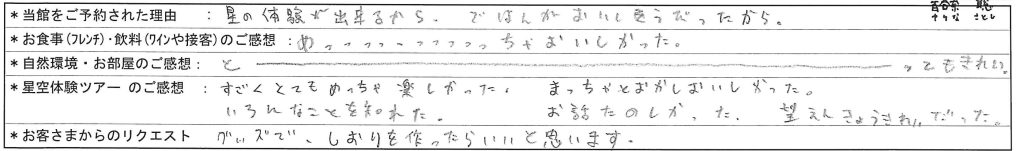 百合奈 聡
ゆりな さとし
*当館をご予約された理由 : 星の体験が出来るから、ごはんがおいしそうだったから。
*お食事(フレンチ)・飲料(ワインや接客)のご感想 : めっっっっっっっっっっちゃおいしかった。
*自然環境・お部屋のご感想 : と――――――――――ってもきれい。
*星空体験ツアー のご感想 : すごくとてもめっちゃ楽しかった。 まっちゃとおかしおいしかった。
いろんなことを知れた。 お話たのしかった、望えんきょうきれいだった。
*お客さまからのリクエスト グッズで、しおりを作ったらいいと思います。